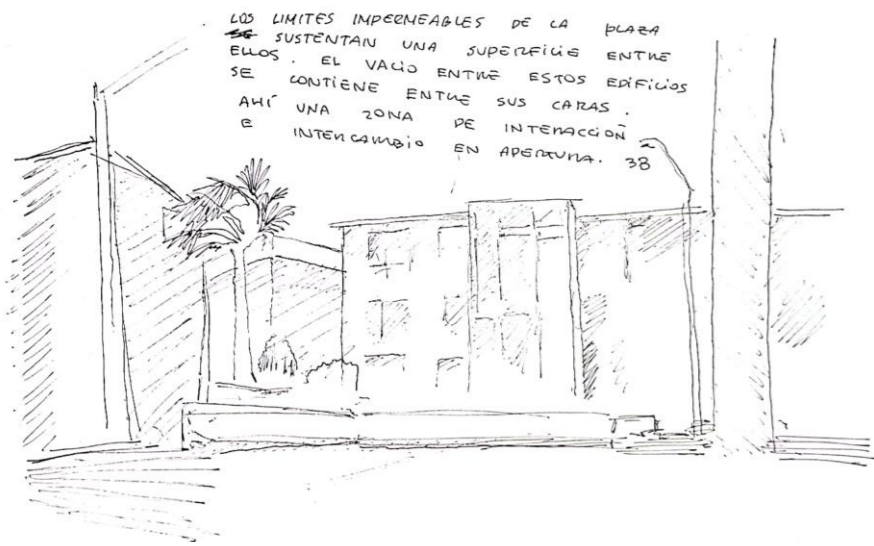 LOS LIMITES IMPERMEABLES DE LA PLAZA
SUSTENTAN UNA SUPERFICIE ENTRE
ELLOS. EL VACIO ENTRE ESTOS EDIFICIOS
SE CONTIENE ENTRE SUS CARAS.
AHÍ UNA ZONA DE INTERACCIÓN
E INTERCAMBIO EN APERTURA. 38